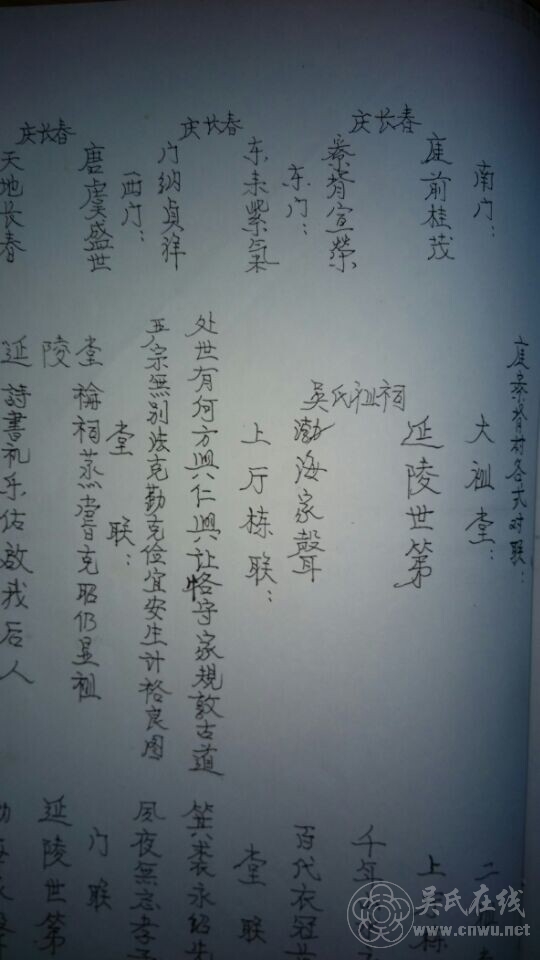 庭寮背村各式对联：
南门：
庭前桂茂
庆长春
寮背宣荣
东门：
东来紫氣
庆长春
门纳貞祥
西门：
唐虞盛世
庆长春
天地长春
大祖堂：
延陵世第
吴氏祖祠
渤海家聲
上厅栋联：
处世有何方興仁興让恪守家規敦古道
宗無别法克勤克俭宜安生计格良图
堂联：
祠蒸嘗克昭仍显祖
延陵堂
詩書礼乐佑啟我后人
二
上
千年
百代衣冠
堂联
箕裘永绍
夙夜無忘孝子
门联
延陵世第
吴氏在线
www.cnwu.net